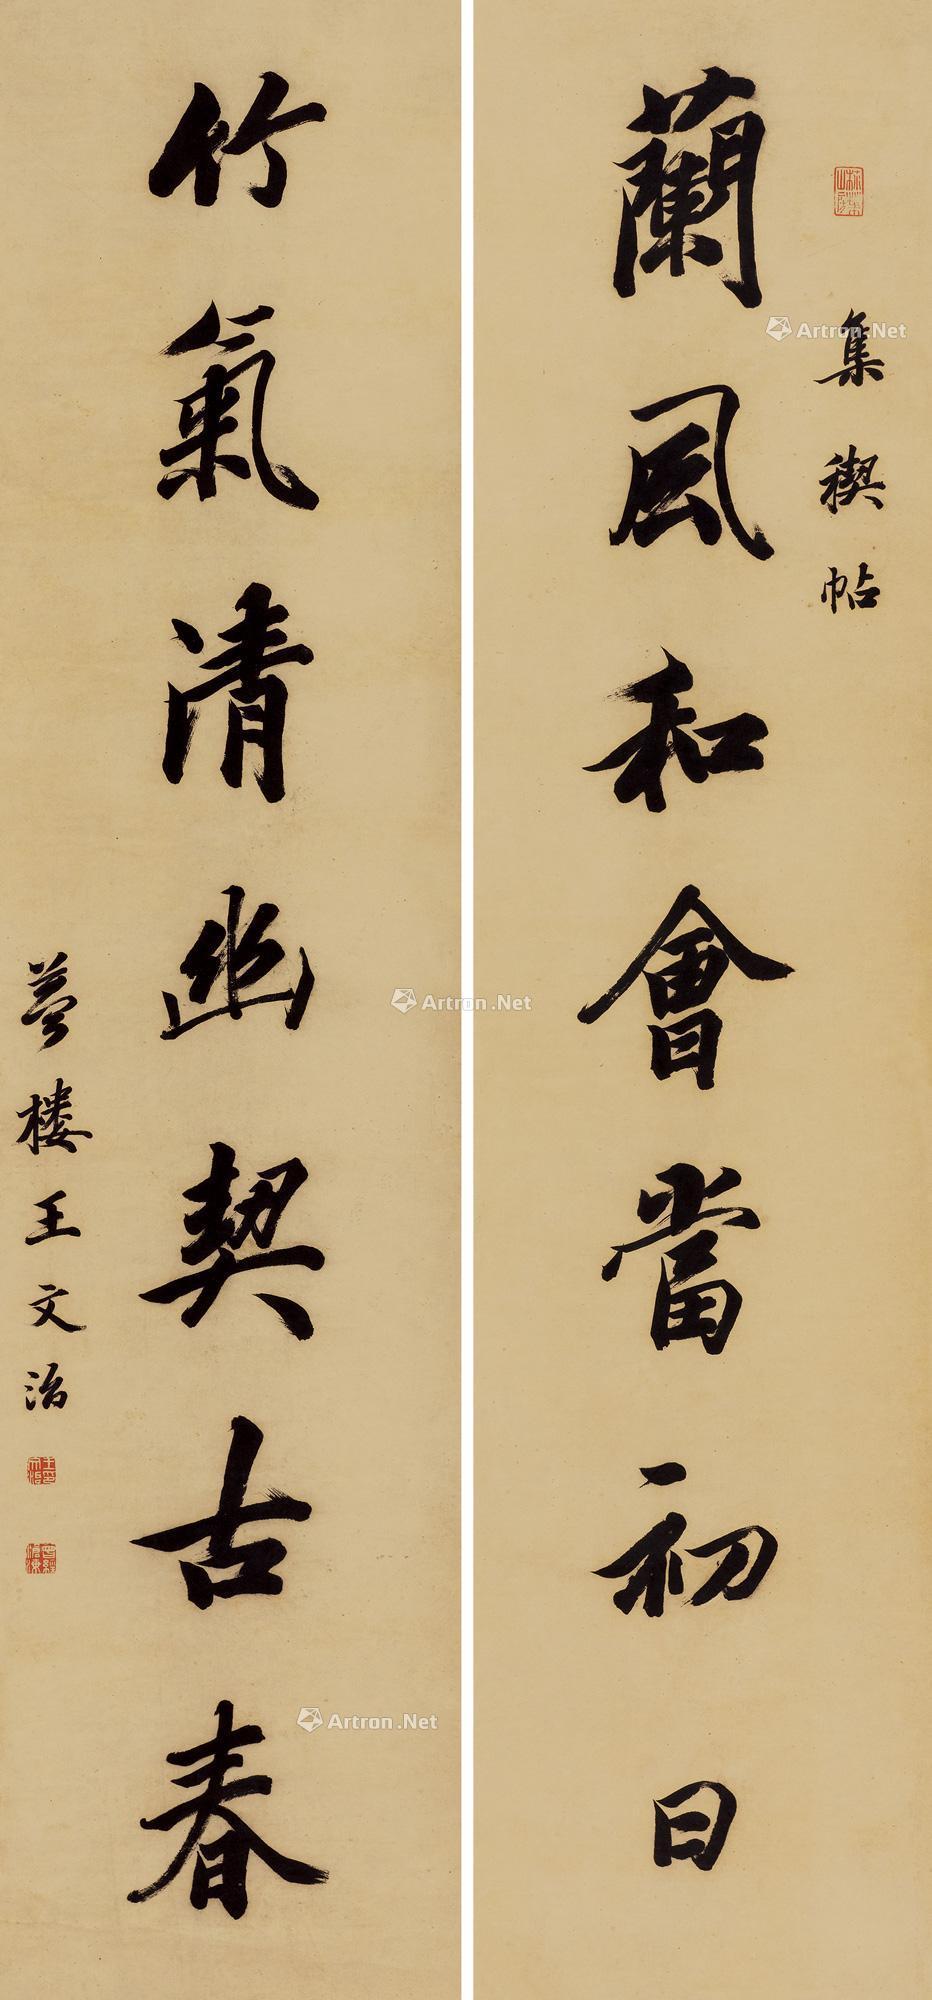 集禊帖
蘭風和會當初日
竹氣清幽契古春
夢樓王文治
Artron.Net
Artron.Net
Artron.Net